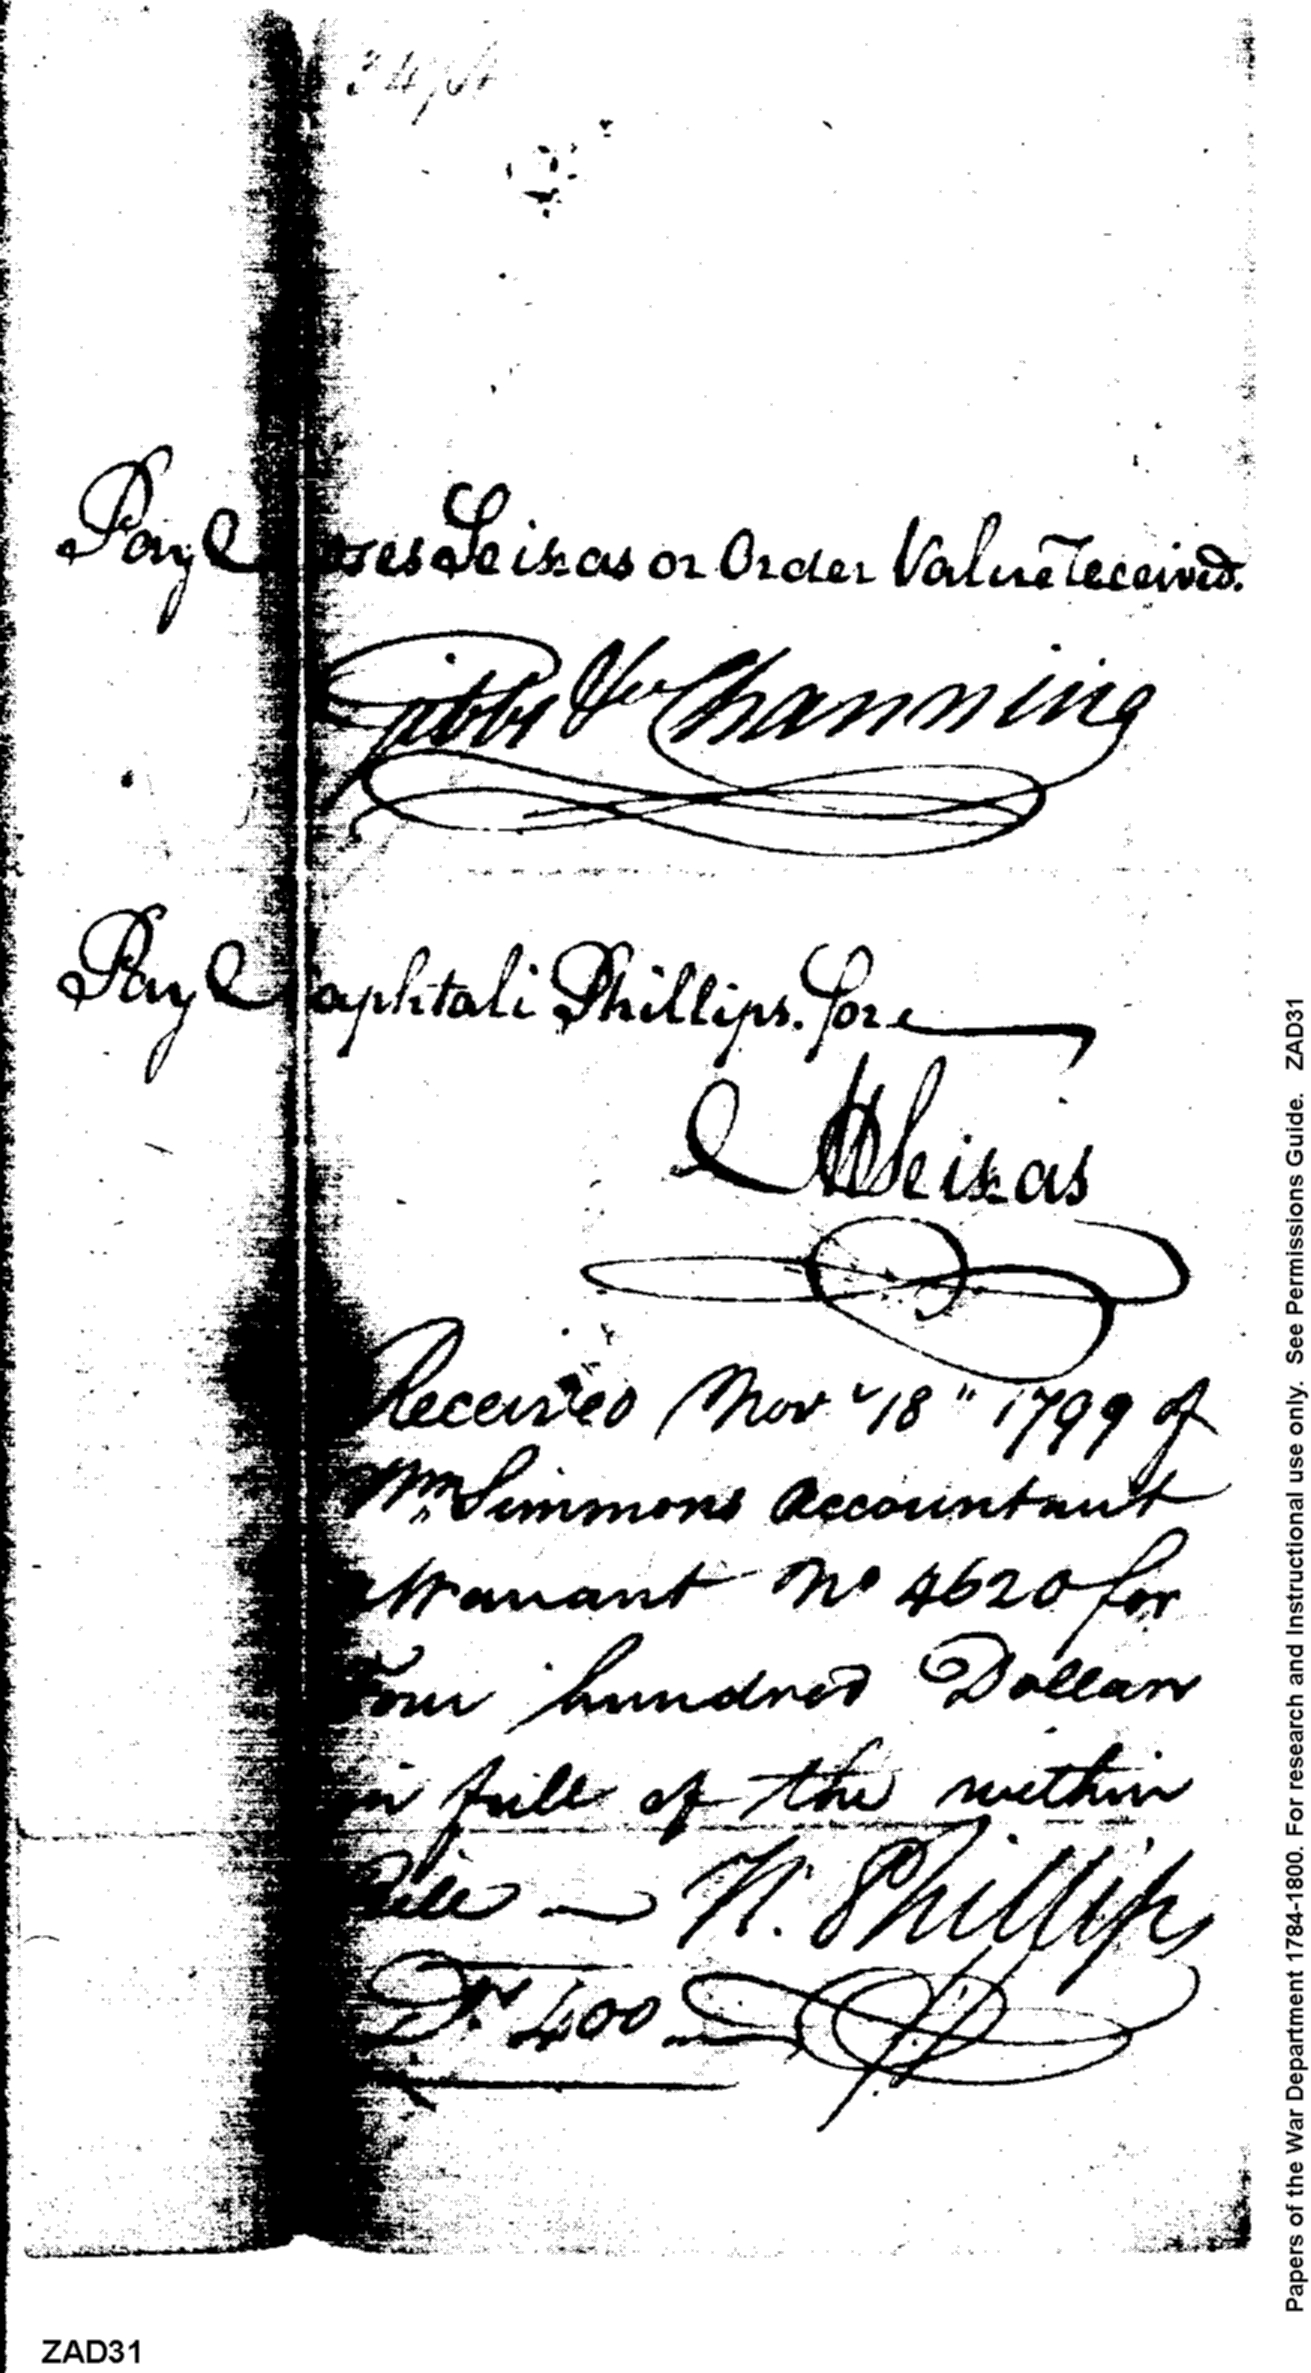 Pay Moses Seixas or Order Value received.
Gibbs & Channing
Pay Naphtali Phillips. or
M Seixas
Received Nov "18" 1799 of
Wm Simmons Accountant
a Warrant No 4620 for
Four hundred Dollars
in full of the within
Bill — N. Phillips
Ds 400
Papers of the War Department 1784-1800. For research and Instructional use only. See Permissions Guide. ZAD31
ZAD31